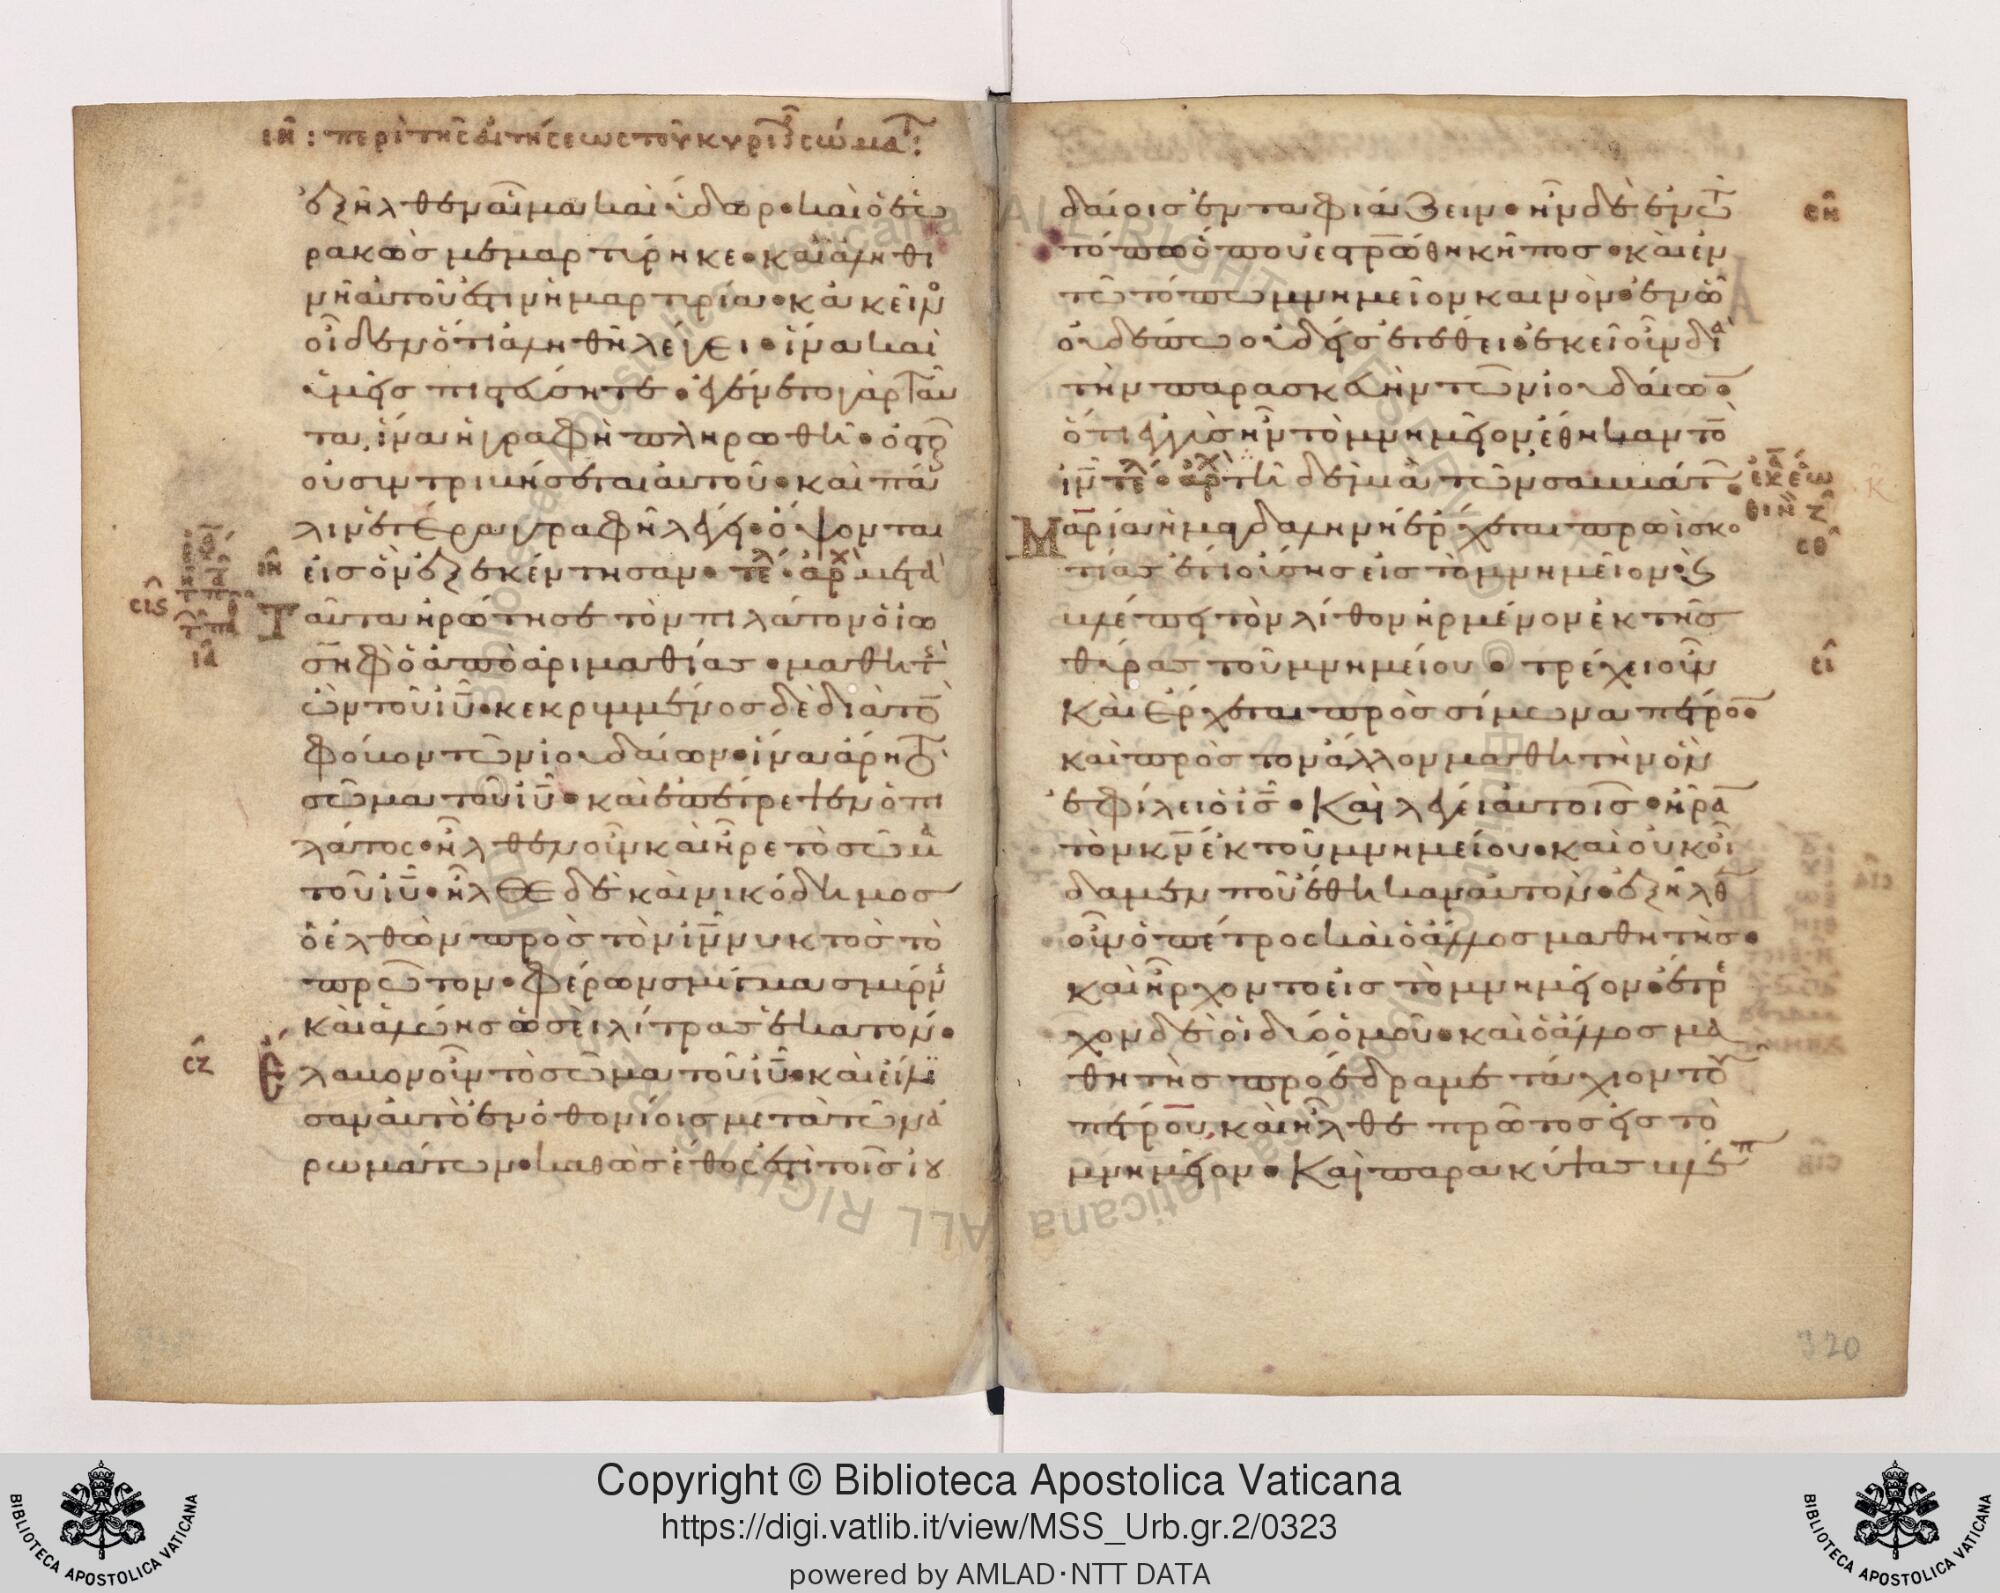 ιη̑ : περὶ τῆς αἰτήσεως τοῦ κυριακοῦ σώματ :
ἐξῆλθεν αἷμα καὶ ὕδωρ· καὶ ὁ ἑω
ρακὼς μεμαρτύρηκε· καὶ ἀληθι
νὴ αὐτοῦ ἐστιν ἡ μαρτυρία· κἀκεῖνο
οἶδεν ὅτι ἀληθῆ λέγει· ἵνα καὶ
ὑμεῖς πιστεύσητε· ἐγένετο γὰρ ταῦ
τα, ἵνα ἡ γραφὴ πληρωθῆ· ὀστοῦ
οὐ συντριβήσεται αὐτοῦ· καὶ πά
λιν ἑτέρα γραφὴ λέγει· ὄψονται
εἰς ὃν ἐξεκέντησαν· τε̅λ· ἀρχ μετὰ
Ταῦτα ἠρώτησε τὸν πιλάτον ὁ ἰω
σὴφ ὁ ἀπὸ ἀριμαθίας· μαθητὴς
ὢν τοῦ ιυ̅· κεκρυμμένος δὲ διὰ τὸ
φόβον τῶν ἰουδαίων· ἵνα ἄρη τὸ
σῶμα τοῦ ιυ̅· καὶ ἐπέτρεψεν ὁ πι
λάτος· ἦλθεν οὖν καὶ ἦρε τὸ σῶμα
τοῦ ιυ̅· ἦλθε δὲ καὶ νικόδημος
ὁ ἐλθὼν πρὸς τὸν ιν̅ νυκτὸς τὸ
πρῶτον· φέρων σμίγμα σμύρν
καὶ ἀλώης ὡσεὶ λίτρας ἑκατόν·
Ἔλαβον οὖν τὸ σῶμα τοῦ ιυ̅· καὶ ἔδη
σαν αὐτὸ ἐν ὀθονίοις μετὰ τῶν ἀ
ρωμάτων· καθὼς ἔθος ἐστὶ τοῖς ἰου
σις
ιη
ια
σζ
δαίοις ἐνταφιάζειν· ἦν δὲ ἐν τῶ
τόπω ὅπου ἐστρώθη κῆπος· καὶ ἐν
τῶ τόπω μνημεῖον καινὸν· ἐν ὧ
οὐδέπω οὐδεὶς ἐτέθει· ἐκεῖ οὖν διὰ
τὴν παρασκευὴν τῶν ἰουδαίων·
ὅτι ἐγγὺς ἦν τὸ μνημεῖον ἔθηκαν τὸ
ιν̅ τε̅λ· ἀρχ τῆ δὲ μιᾶ τῶν σαββάτων·
Μαρία ἡ μαγδαληνὴ ἔρχεται πρωῒ σκο
τίας ἔτι οὔσης εἰς τὸ μνημεῖον· καὶ
βλέπει τὸν λίθον ἠρμένον ἐκ τῆς
θύρας τοῦ μνημείου· τρέχει οὖν
Καὶ ἔρχεται πρὸς σίμωνα πέτρον·
καὶ πρὸς τὸν ἄλλον μαθητὴν ὃν
ἐφίλει ὁ ις̅· Καὶ λέγει αὐτοῖς· ἦρα
τὸν κν̅ ἐκ τοῦ μνημείου· καὶ οὐκ οἴ
δαμεν ποῦ ἔθηκαν αὐτὸν· ἐξῆλθεν
οὖν ὁ πέτρος καὶ ὁ ἄλλος μαθητὴς·
καὶ ἤρχοντο εἰς τὸ μνημεῖον· ἔτρε
χον δὲ οἱ δύο ὁμοῦ· καὶ ὁ ἄλλος μα
θητὴς προέδραμε τάχιον τοῦ
πέτρου, καὶ ἦλθε πρῶτος εἰς τὸ
μνημεῖον· Καὶ παρακύψας βλέπ
ση
σθ
σι
320
Copyright © Biblioteca Apostolica Vaticana
https://digi.vatlib.it/view/MSS_Urb.gr.2/0323
powered by AMLAD·NTT DATA
BIBLIOTECA APOSTOLICA VATICANA
BIBLIOTECA APOSTOLICA VATICANA